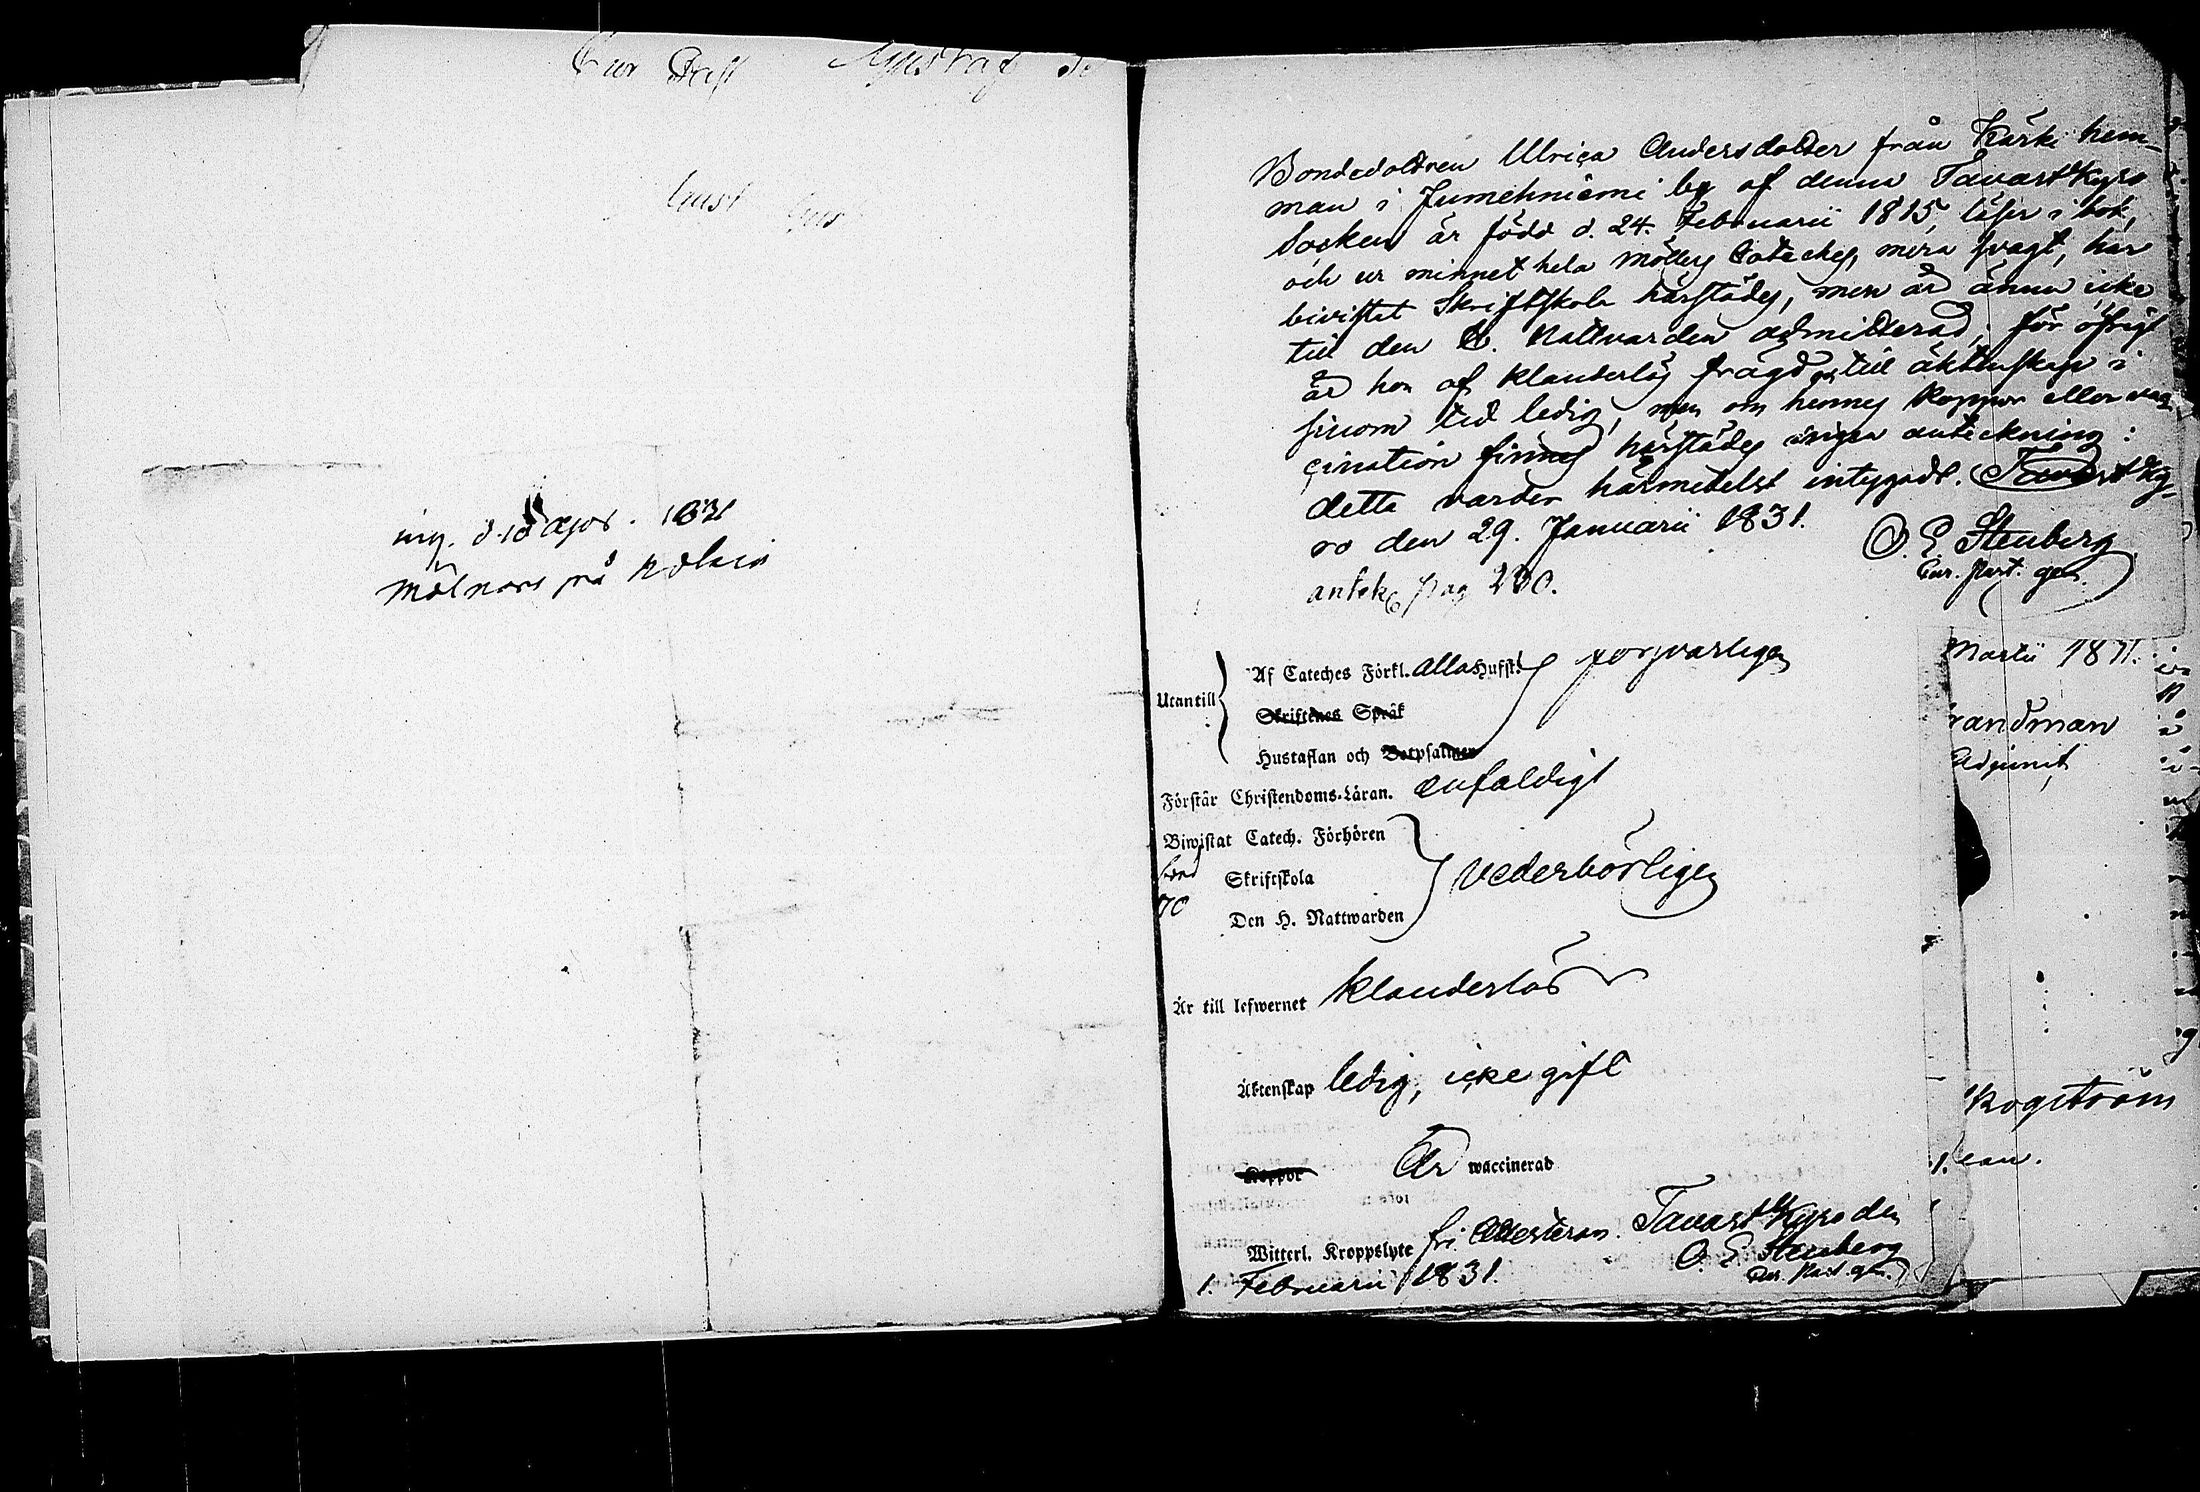 ing. d. 18 Apr. 1831
Bondedottren Ulrica Andersdotter från Kärki hem-
man i Jumehniemi by af denna TavastKyro
Socken är född d. 24. Februarii 1815, läser i bok,
och ur minnet hela möllers Cateches, mera svagt, har
bivistat Skriftskola härstädes, men är ännu icke
till den H. Nattvarden admitterad; för öfrigt
är hon af klanderlös frägd och till äktenskap i
sinom tid ledig, men om hennes Koppor eller vac-
cination finnes härstädes ingen anteckning:
detta varder härmedelst intygadt. TavastKy-
ro den 29. Januarii 1831.
O. E. Stenberg
Cur. Past. gen.
antek. pag 230.
Utantill
Af Cateches Förkl. alla Hufst:
försvarligen
Skriftenes Språk
Hustaflan och Botpsalmer
Förstår Christendoms-Läran. enfaldigt
Biwistat Catech. Förhören
Skriftskola
vederbörligen
Den H. Nattwarden
Är till lefwernet klanderlös
Äktenskap ledig, icke gift
Koppor Är waccinerad
Witterl. Kroppslyte fri. Attesteras. TavastKyro den
1. Februarii 1831. O. E. Stenberg
Cur. Past. gen.
Martii 1831.
randman
Adjunct
kogström